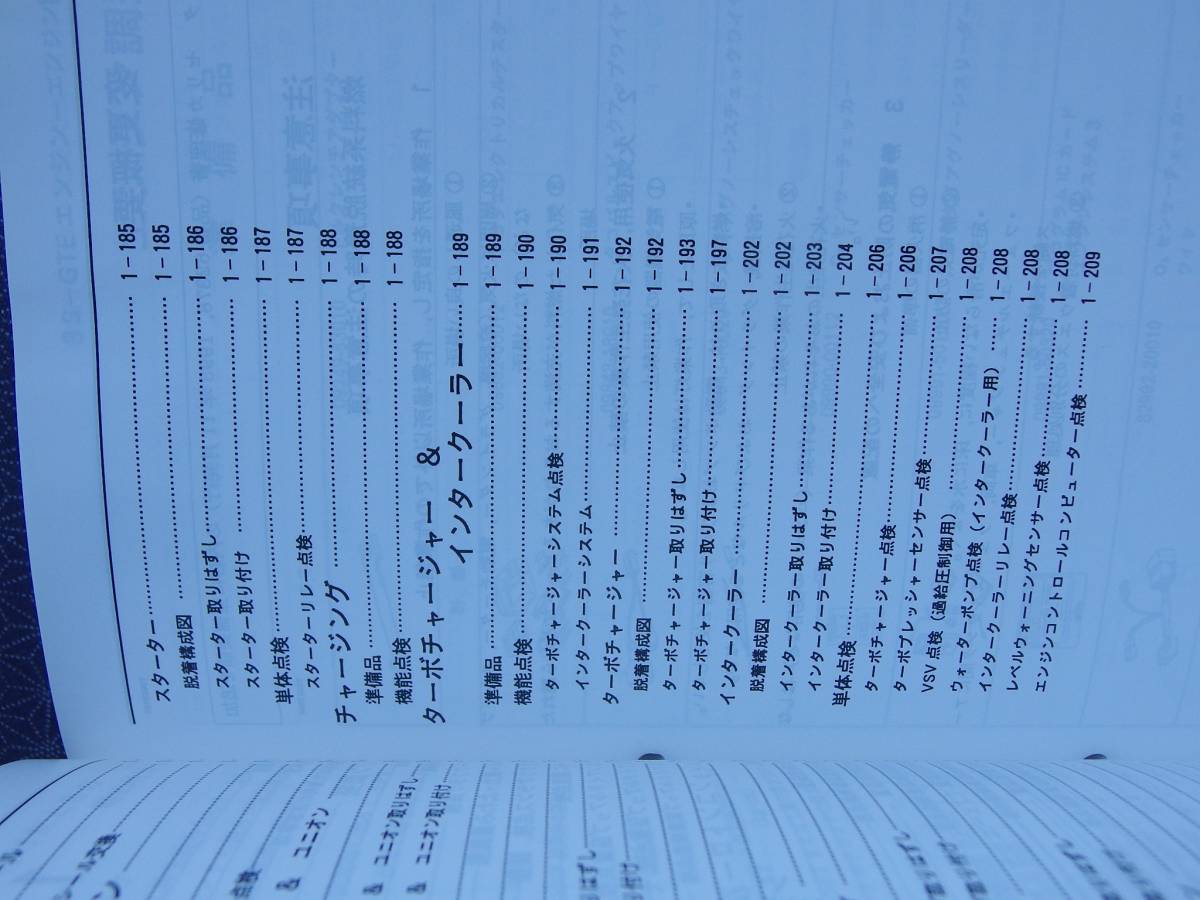 スターター 1-185
脱着構成図 1-185
スターター取りはずし 1-186
スターター取り付け 1-186
単体点検 1-187
スターターリレー点検 1-187
チャージング 1-188
準備品 1-188
機能点検 1-188
ターボチャージャー &
インタークーラー 1-189
準備品 1-189
機能点検 1-190
ターボチャージャーシステム点検 1-190
インタークーラーシステム 1-191
ターボチャージャー 1-192
脱着構成図 1-192
ターボチャージャー取りはずし 1-193
ターボチャージャー取り付け 1-197
インタークーラー 1-202
脱着構成図 1-202
インタークーラー取りはずし 1-203
インタークーラー取り付け 1-204
単体点検 1-206
ターボチャージャー点検 1-206
ターボプレッシャーセンサー点検 1-207
VSV点検(過給圧制御用) 1-208
ウォーターポンプ点検(インタークーラー用) 1-208
インタークーラーリレー点検 1-208
レベルウォーニングセンサー点検 1-208
エンジンコントロールコンピューター点検 1-209
ール交換
点検
& ユニオン
& ユニオン取りはずし
& ユニオン取り付け
はずし
付け